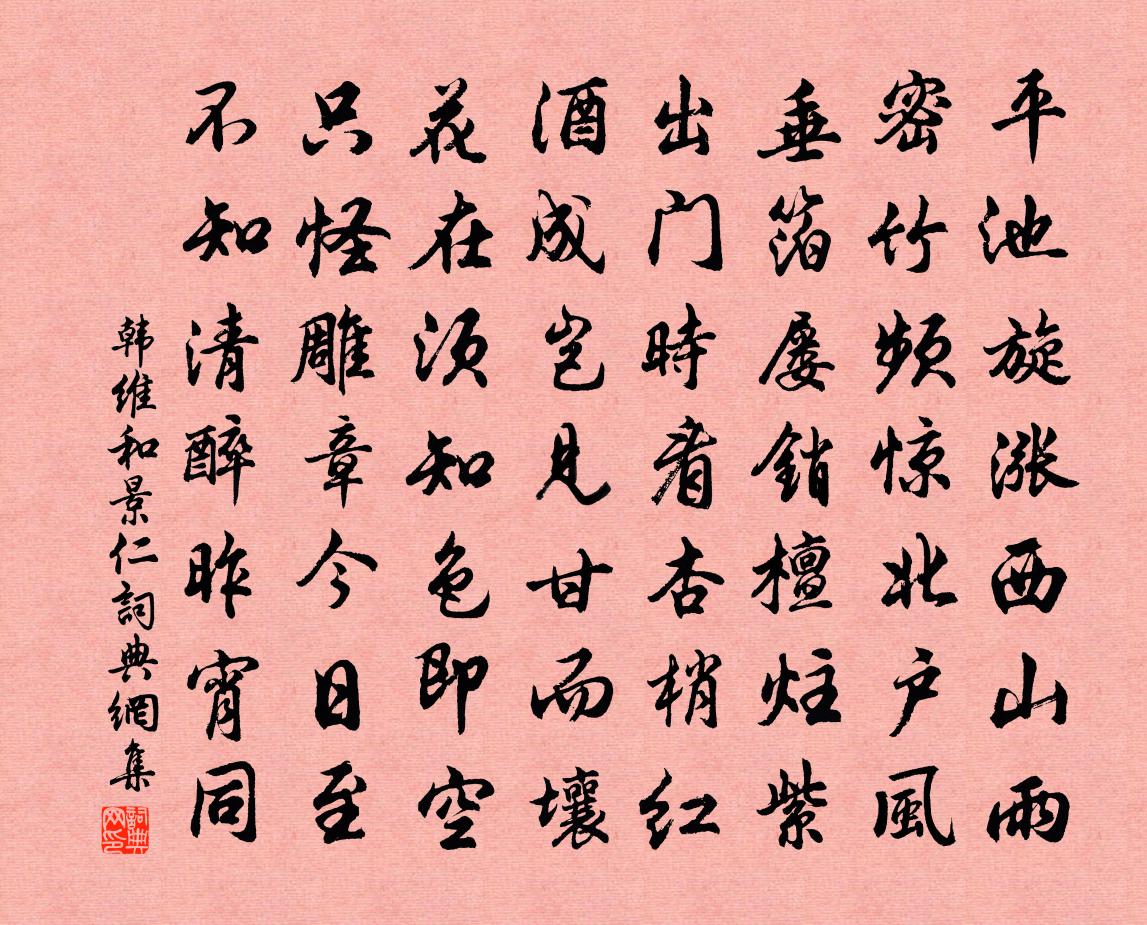 平池旋漲西山雨
密竹頻惊北户風
垂箔屡銷檀炷紫
出门時看杏梢红
酒成岂見甘而壤
花在须知色即空
只怪雕章今日至
不知清醉昨宵同
韩维和景仁詞典網集
詞典网印